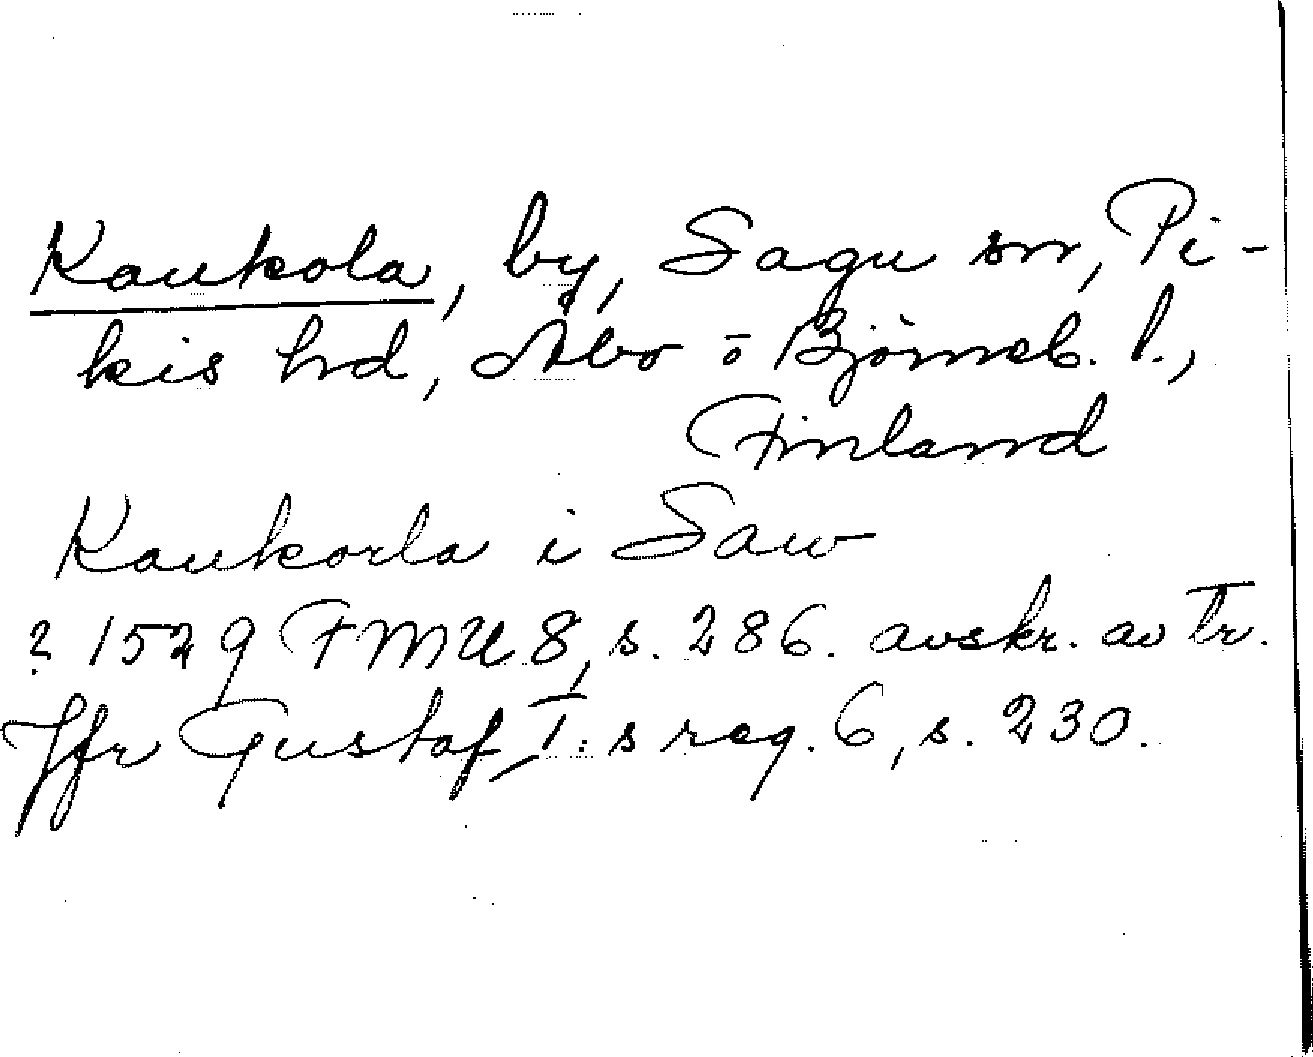 Kaukola, by, Sagu sn, Pi-
kis hd, Åbo o Björneb. l.,
Finland
Kaukorla i Saw
? 1529 FMU 8, s. 286. avskr. av tr.
Jfr Gustaf I:s reg. 6, s. 230.